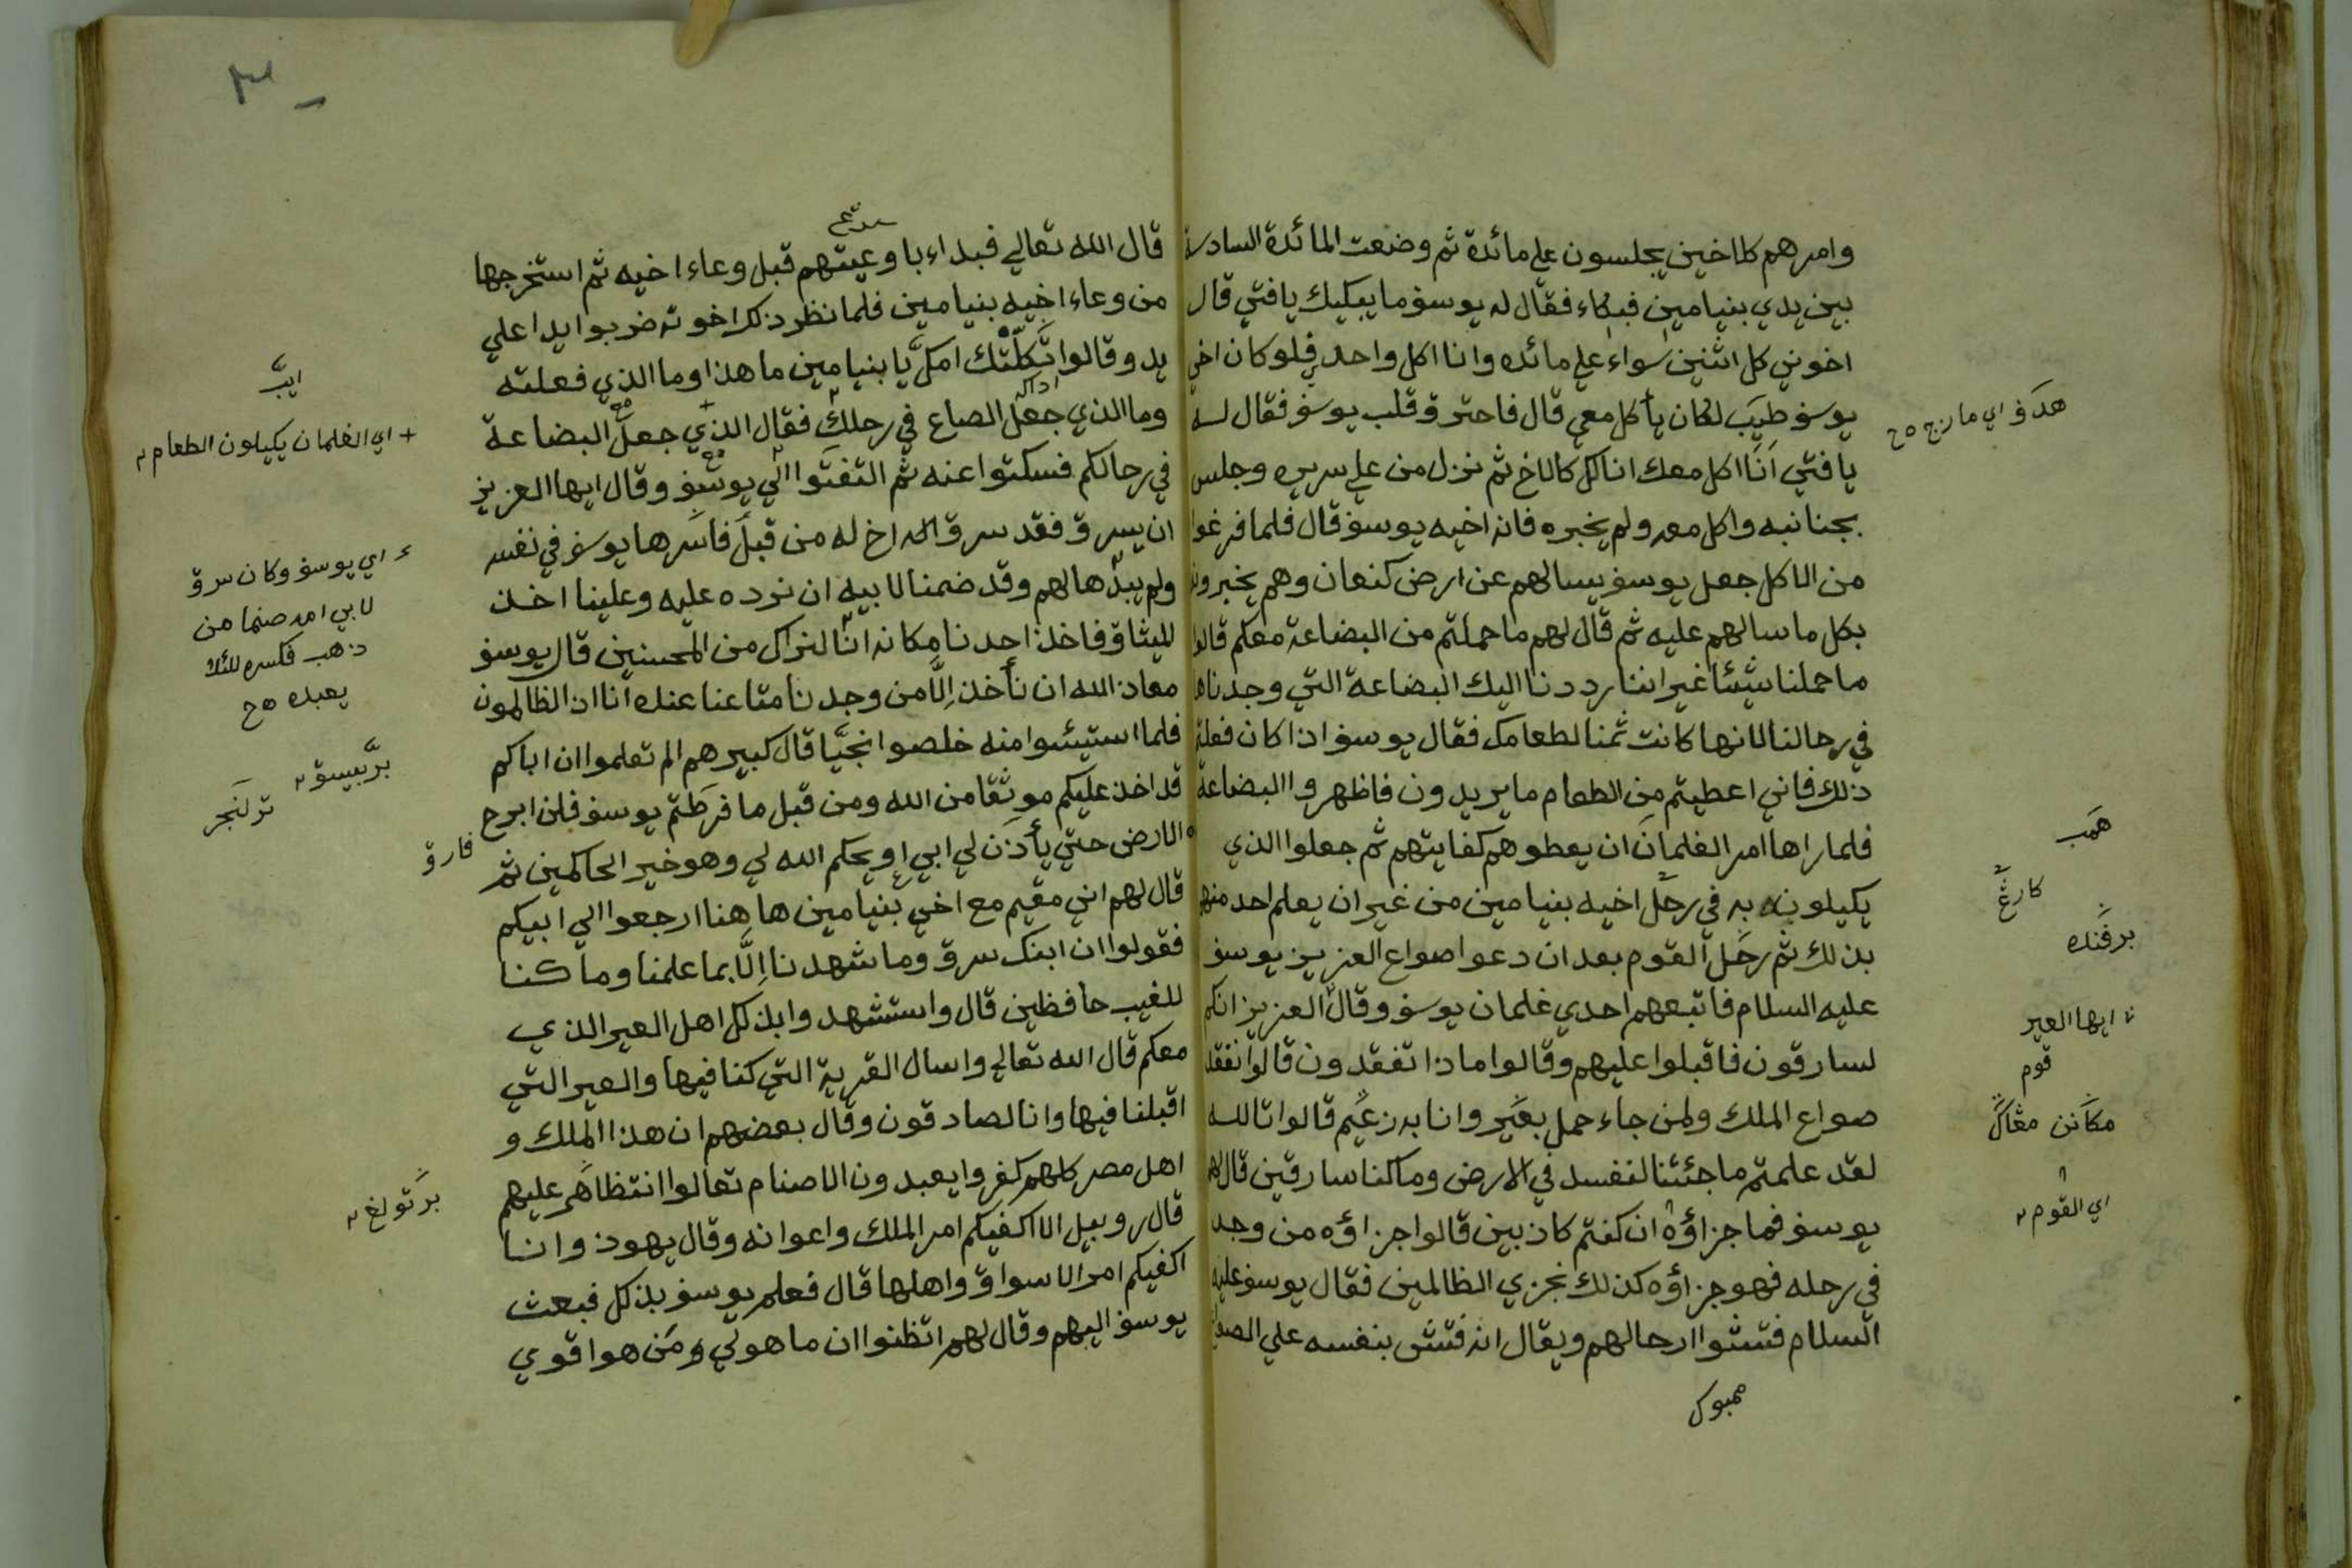 وامرهم كالاخين يجلسون علي مائدة ثم وضعت المائدة السادسة
بين يدي بنيامين فبكاء فقال له يوسف ما يبكيك يا فتي قال
اخوتي كل اثنين سواء علي مائده وانا اكل واحد فلو كان اخي
يوسف طيب لكان يأكل معي قال فاحترق قلب يوسف فقال له
يا فتي انا اكل معك انا لك كالاخ ثم نزل من علي سريره وجلس
بجنانبه واكل معه ولم يخبره فانه اخيه يوسف قال فلما فرغوا
من الاكل جعل يوسف يسالهم عن ارض كنعان وهم يخبرونه
بكل ما سالهم عليه ثم قال لهم ما حملتم من البضاعة معكم قالوا
ما حملنا شيئا غير اننا رددنا اليك البضاعة التي وجدناها
في رحالنا لانها كانت ثمنا لطعامك فقال يوسف اذا كان فعلتم
ذلك فاني اعطيتم من الطعام ما يريدون فاظهروا البضاعة
فلما راها امر الغلمان ان يعطوهم كفايتهم ثم جعلوا الذي
يكيلونه به في رحل اخيه بنيامين من غير ان يعلم احد منهم
بذلك ثم رحل القوم بعد ان دعوا صواع العزيز يوسف
عليه السلام فاتبعهم احدي غلمان يوسف وقال العزيز انكم
لسارقون فاقبلوا عليهم وقالوا ماذا تفقدون قالوا نفقد
صواع الملك ولمن جاء حمل بعير وانا به زعيم قالوا تالله
لقد علمتم ما جئتنا لنفسد في الارض وما كنا سارقين قال لهم
يوسف فما جزاؤه ان كنتم كاذبين قالوا جزاؤه من وجد
في رحله فهو جزاؤه كذلك نجزي الظالمين فقال يوسف عليه
السلام فتشوا رحالهم ويقال انه فتش بنفسه علي الصواع
هدف اي مارج ه ح
همب
كارغ
برفنده
ايها العير
قوم
مكانن مڠاكل
اي القوم
ممبوك
قال الله تعالي فبداء باوعيتهم قبل وعاء اخيه ثم استخرجها
من وعاء اخيه بنيامين فلما نظر ذلك اخوته ضربوا يدا علي
يد وقالوا ثكلتك امك يا بنيامين ما هذا وما الذي فعلته
وما الذي جعل الصاع في رحلك فقال الذي جعل البضاعة
في رحالكم فسكتوا عنه ثم التفتوا الي يوسف وقال ايها العزيز
ان يسرق فقد سرق اخ له من قبل فاسرها يوسف في نفسه
ولم يبدها لهم وقد ضمنا لابيه ان نرده عليه وعلينا اخذ
الميثاق فاخذ احدنا مكانه انا لنراك من المحسنين قال يوسف
معاذ الله ان نأخذ الا من وجدنا متاعنا عنده انا اذ الظالمون
فلما استيئسوا منه خلصوا نجيا قال كبيرهم الم تعلموا ان اباكم
قد اخذ عليكم موثقا من الله ومن قبل ما فرطتم يوسف فلن ابرح
الارض حتي يأذن لي ابي او يحكم الله لي وهو خير الحاكمين ثم
قال لهم اني مقيم مع اخي بنيامين ها هنا ارجعوا الي ابيكم
فقولوا ان ابنك سرق وما شهدنا الا بما علمنا وما كنا
للغيب حافظين قال واستشهدوا بذلك اهل العير الذي
معكم قال الله تعالي واسال القرية التي كنا فيها والعير التي
اقبلنا فيها وانا لصادقون وقال بعضهم ان هذا الملك و
اهل مصر كلهم كفروا يعبدون الاصنام تعالوا انتظاهر عليهم
قال روبيل الا اكفيكم امر الملك واعوانه وقال يهوذ وانا
اكفيكم امر الاسواق واهلها قال فعلم يوسف بذلك فبعث
يوسف اليهم وقال لهم اتظنوا ان ما هو لي ومن هو اقوي
ايب
+ اي الغلمان يكيلون الطعام
اي يوسف وكان سرق
لابي امه صنما من
ذهب فكسره لئلا
يعبده ه ح
بربيسق
ترلنجر
فارق
برتولغ